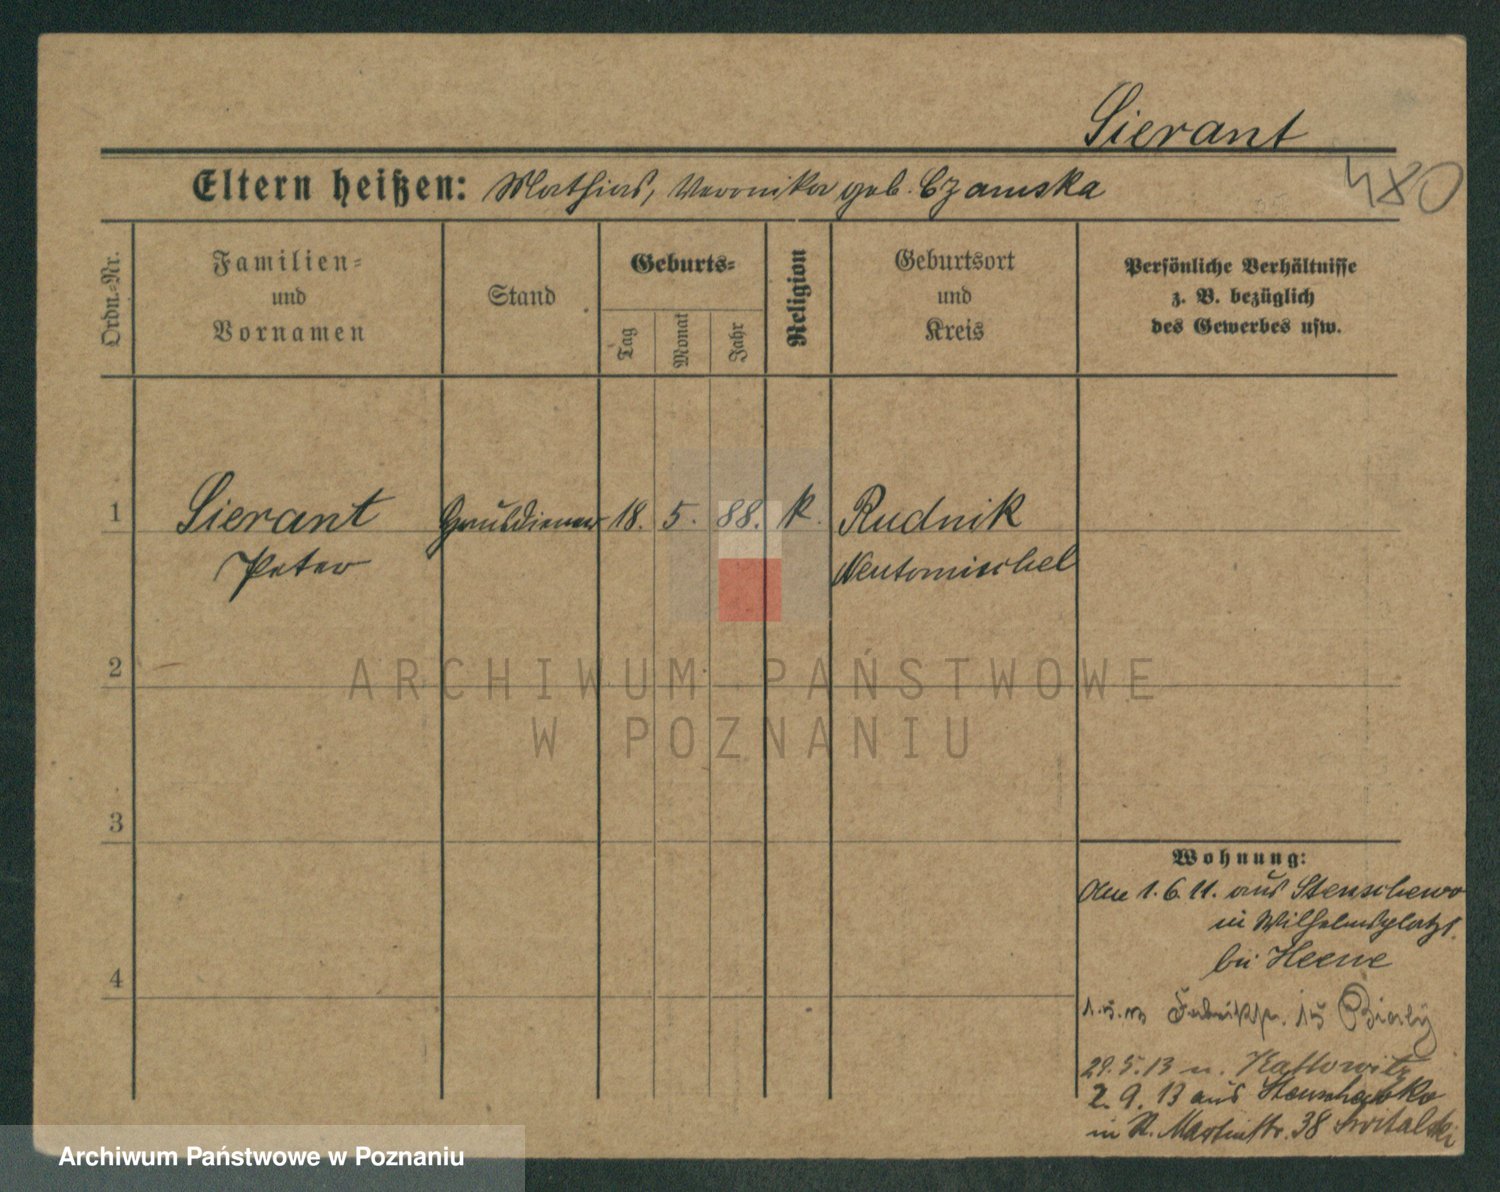 Sierant
480
Eltern heißen: Mathias, Veronika geb. Czamska
Ordn.-Nr.
Familien-
und
Vornamen
Stand
Geburts-
Tag
Monat
Jahr
Religion
Geburtsort
und
Kreis
Persönliche Verhältnisse
z. B. bezüglich
des Gewerbes usw.
1 Sierant Hausdiener 18. 5. 88. k. Rudnik
Peter Neutomischel
2
ARCHIWUM PAŃSTWOWE
W POZNANIU
3
Wohnung:
Am 1.6.11. aus Stenschewo
in Wilhelmsplatz
bei Heene
4
Fabrikstr. 15 Bialy
29.5.13 n. Kattowitz
2.9.13 aus
in St. Martinstr. 38 Switalski
Archiwum Państwowe w Poznaniu